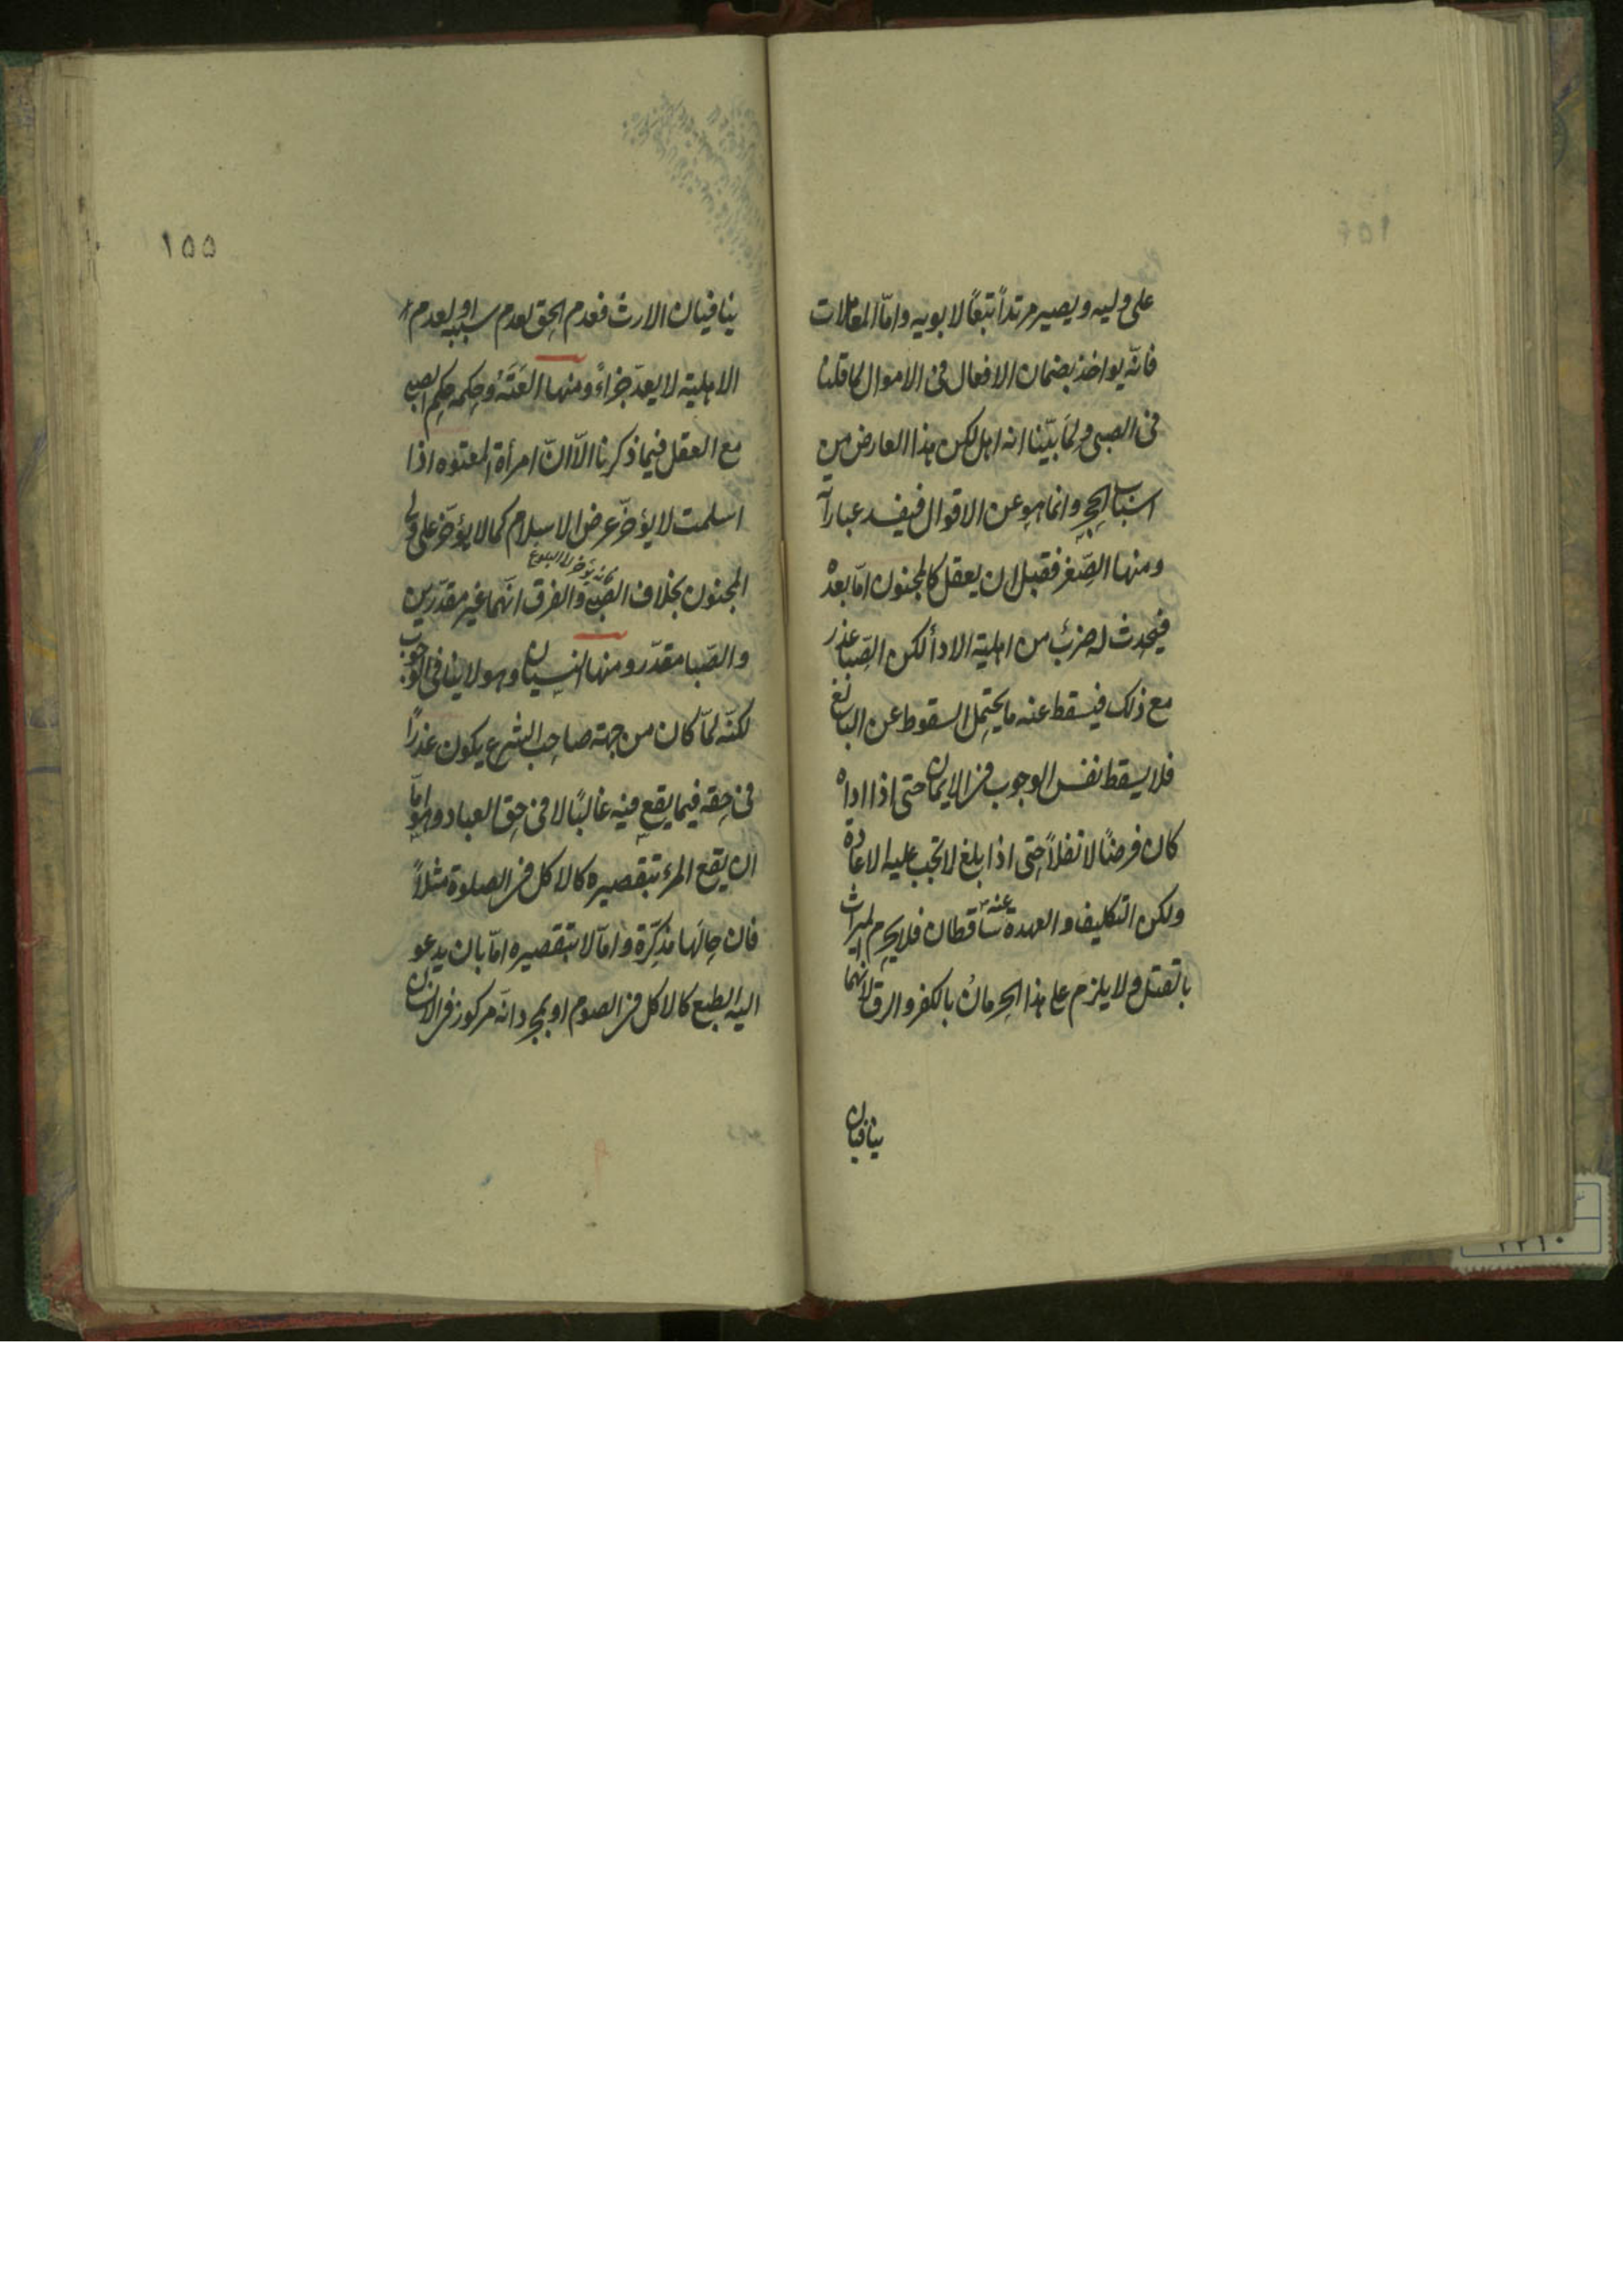 على وليه ويصير مرتداً تبعًا لابويه وامّا المعاملات
فانّه يواخذ بضمان الافعال فى الاموال كما قلنا
فى الصبى ولما بيّنا انه اهل لكن هذا العارض من
اسباب الحجر وانما هو عن الاقوال فيفسد عباراته
ومنها الصّغر فقبل ان يعقل كالمجنون امّا بعده
فيحدث له ضربٌ من اهلية الادأ لكن الصّبا عذر
مع ذلك فيسقط عنه ما يحتمل السقوط عن البالغ
فلا يسقط نفس الوجوب فى الايمان حتى اذا اداه
كان فرضًا لا نفلاً حتى اذا بلغ لا تجب عليه الاعادة
ولكن التكليف والعهدة عنه ساقطان فلا يحرم الميراث
بالقتل ولا يلزم على هذا الحرمان بالكفر والرق لانهما
ينافيان
١٥٥
ينافيان الارث فعدم الحق لعدم سببه او لعدم
الاهلية لا يعدّ جزاءً ومنها العَتَهُ وحكمه حكم الصبى
مع العقل فيما ذكرنا الّا انّ امرأة المعتوه اذا
اسلمت لا يؤخّر عرض الاسلام كما لا يؤخّر على ولى
المجنون بخلاف الصبى والفرق انّهما غير مقدّرين
والصّبا مقدّر ومنها النسيان وهو لا ينافى الوجوب
لكنّه لمّا كان من جهة صاحب الشرع يكون عذرًا
فى حقه فيما يقع فيه غالبًا لا فى حق العباد وهو امّا
ان يقع المرء بتقصيره كالاكل فى الصلوة مثلاً
فان حالها مذكّرة وامّا لا بتقصيره امّا بان يدعو
اليه الطبع كالاكل فى الصوم او بمجرد انّه مركوز فى الانسان